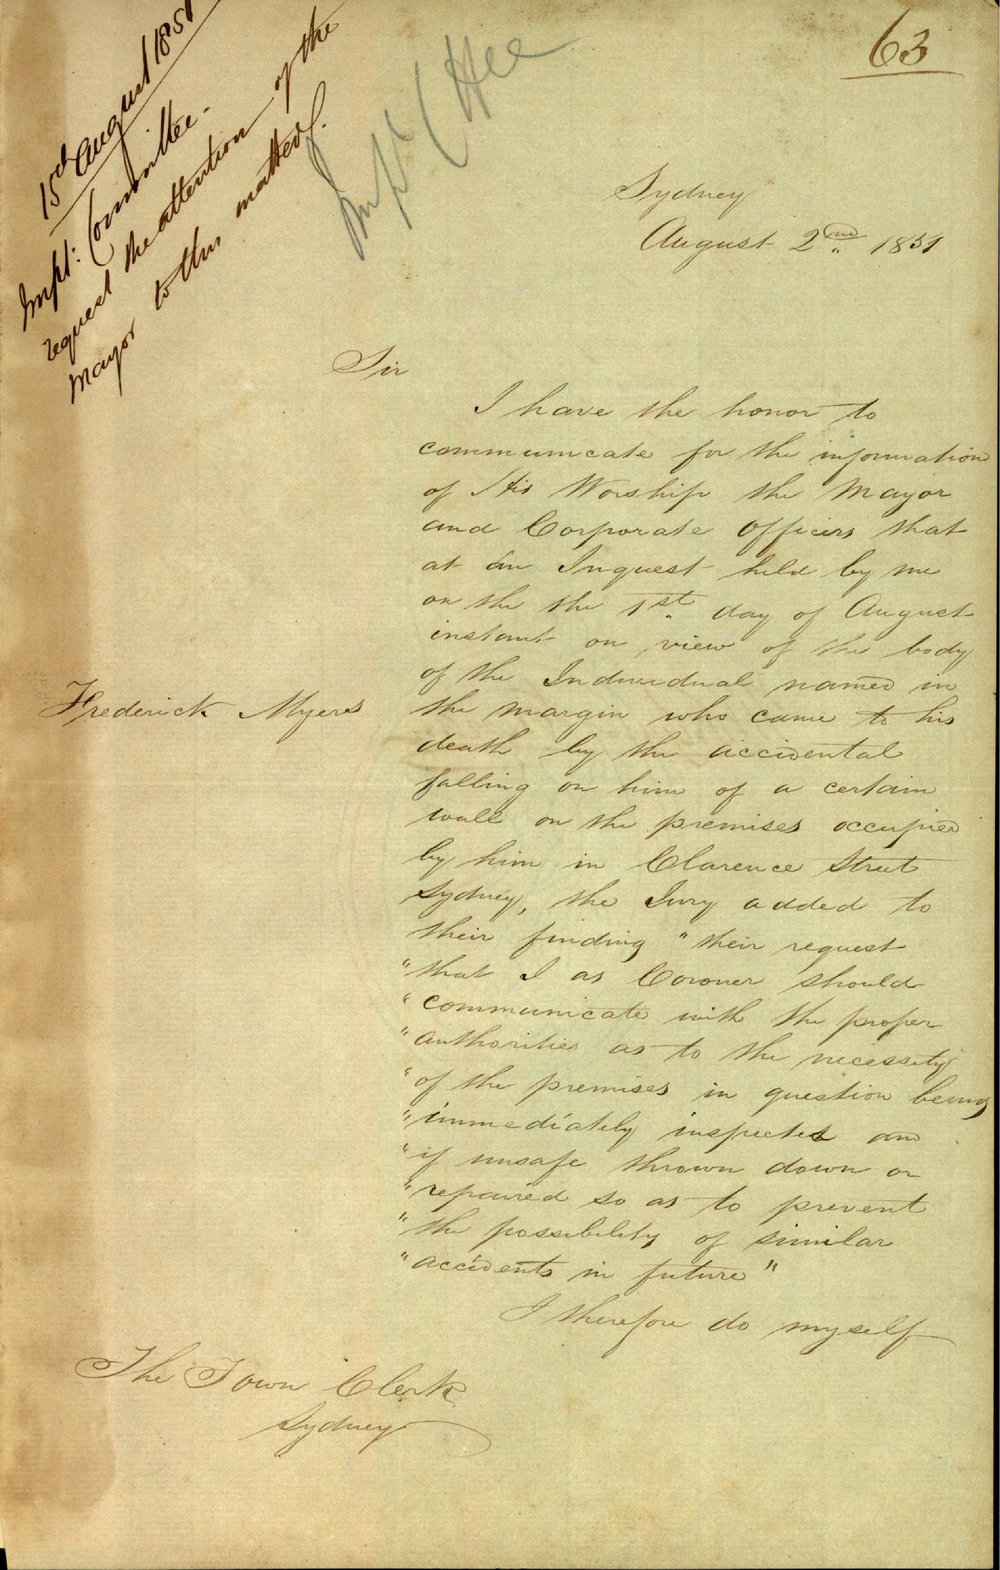 63
15th August 1851
Impt: Committee -
request the attention of the
Mayor to this matter.
Impt Ctee
Sydney
August 2nd 1851
Sir
I have the honor to
communicate for the information
of His Worship the Mayor
and Corporate Officers that
at an Inquest held by me
on the the 1st day of August
instant on view of the body
of the Individual named in
Frederick Myers
the margin who came to his
death by the accidental
falling on him of a certain
wall on the premises occupied
by him in Clarence Street
Sydney, the Jury added to
their finding "their request
"that I as Coroner should
"communicate with the proper
"authorities as to the necessity
"of the premises in question being
"immediately inspected and
"if unsafe thrown down or
"repaired so as to prevent
"the possibility of similar
"accidents in future"
I therefore do myself
The Town Clerk
Sydney